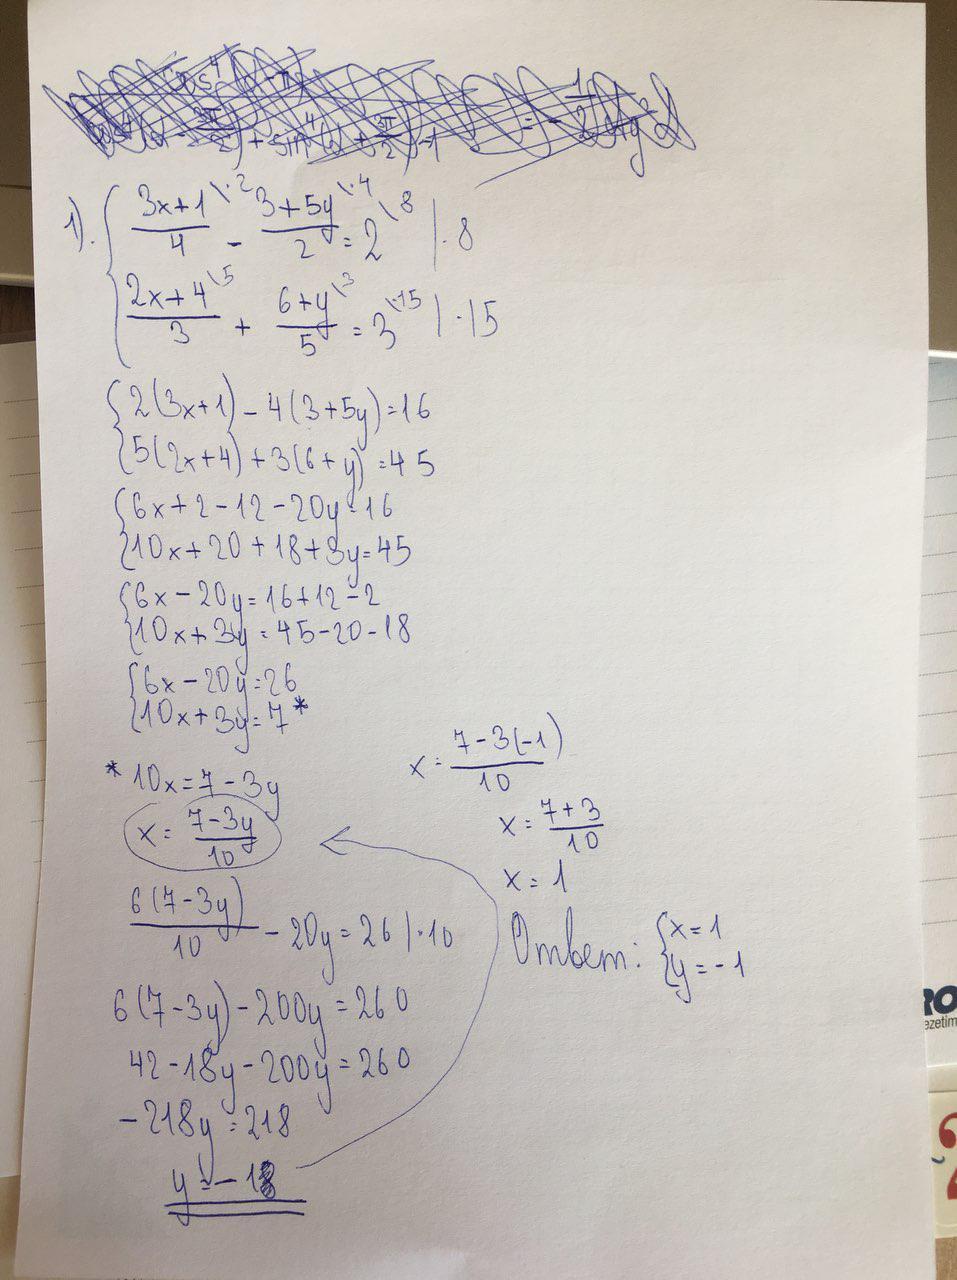 1). { (3x+1)/4 \·2 - (3+5y)/2 \·4 = 2 \8 | ·8
{ (2x+4)/3 \5 + (6+y)/5 \3 = 3 \·15 | ·15
{ 2(3x+1) - 4(3+5y) = 16
{ 5(2x+4) + 3(6+y) = 45
{ 6x+2-12-20y=16
{ 10x+20+18+3y=45
{ 6x-20y=16+12-2
{ 10x+3y=45-20-18
{ 6x-20y=26
{ 10x+3y=7 *
* 10x=7-3y
x= (7-3y)/10
6(7-3y)/10 - 20y=26 | ·10
6(7-3y)-200y=260
42-18y-200y=260
-218y=218
y=-1
x= (7-3(-1))/10
x= (7+3)/10
x=1
Ответ: { x=1
{ y=-1
RO
ezetim
2